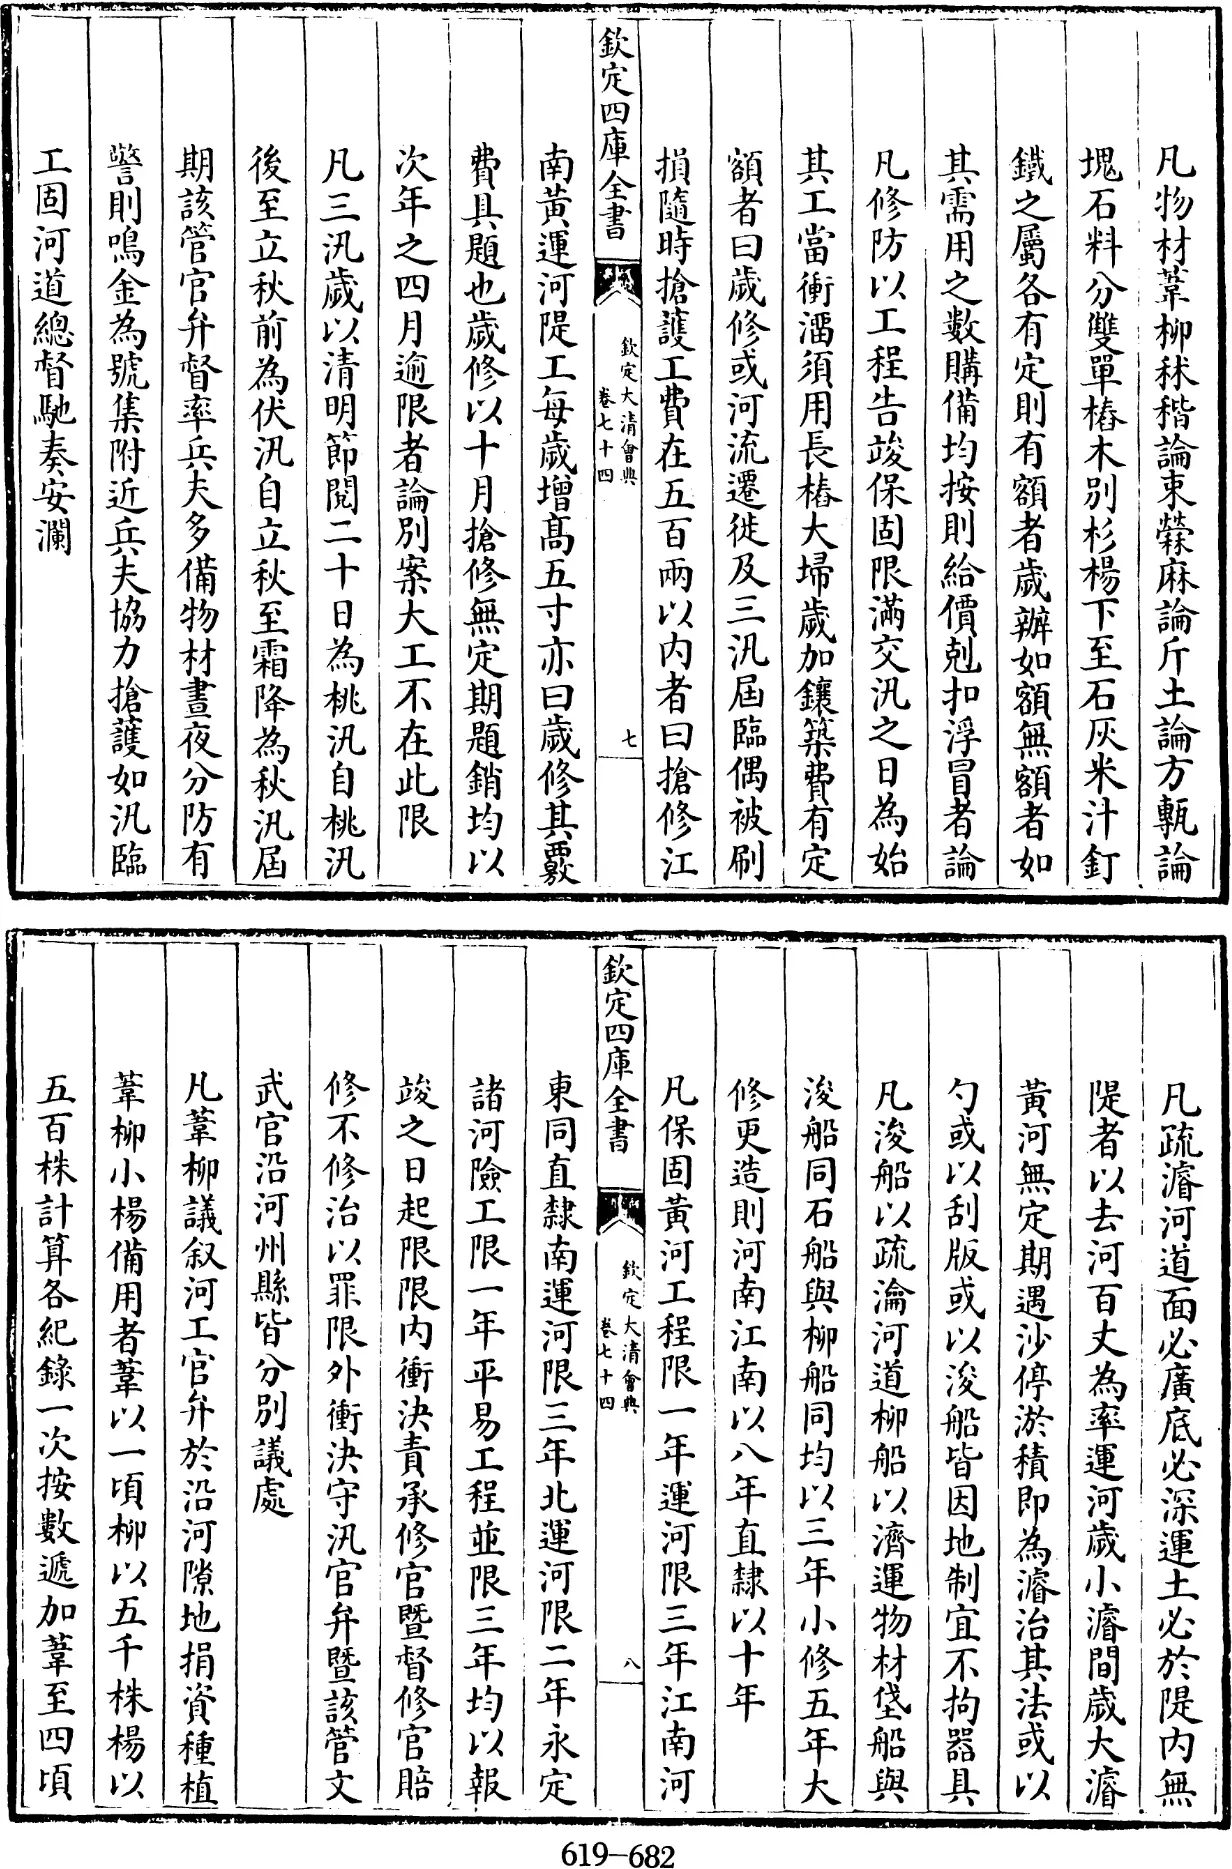 凡物材葦柳秫稭論束檾麻論斤土論方甎論
塊石料分雙單樁木別杉楊下至石灰米汁釘
鐵之屬各有定則有額者歲辦如額無額者如
其需用之數購備均按則給價剋扣浮冒者論
凡修防以工程告竣保固限滿交汛之日為始
其工當衝溜須用長樁大埽歲加鑲築費有定
額者曰歲修或河流遷徙及三汛屆臨偶被刷
損隨時搶護工費在五百兩以内者曰搶修江
欽定四庫全書
欽定大清會典
卷七十四
七
南黃運河隄工每歲增高五寸亦曰歲修其覈
費具題也歲修以十月搶修無定期題銷均以
次年之四月逾限者論別案大工不在此限
凡三汛歲以清明節閱二十日為桃汛自桃汛
後至立秋前為伏汛自立秋至霜降為秋汛屆
期該管官弁督率兵夫多備物材晝夜分防有
警則鳴金為號集附近兵夫協力搶護如汛臨
工固河道總督馳奏安瀾
凡疏濬河道面必廣底必深運土必於隄内無
隄者以去河百丈為率運河歲小濬間歲大濬
黃河無定期遇沙停淤積即為濬治其法或以
勺或以刮版或以浚船皆因地制宜不拘器具
凡浚船以疏瀹河道柳船以濟運物材垡船與
浚船同石船與柳船同均以三年小修五年大
修更造則河南江南以八年直隸以十年
凡保固黃河工程限一年運河限三年江南河
欽定四庫全書
欽定大清會典
卷七十四
八
東同直隸南運河限三年北運河限二年永定
諸河險工限一年平易工程並限三年均以報
竣之日起限限内衝決責承修官暨督修官賠
修不修治以罪限外衝決守汛官弁暨該管文
武官沿河州縣皆分別議處
凡葦柳議叙河工官弁於沿河隙地捐資種植
葦柳小楊備用者葦以一頃柳以五千株楊以
五百株計算各紀錄一次按數遞加葦至四頃
619-682